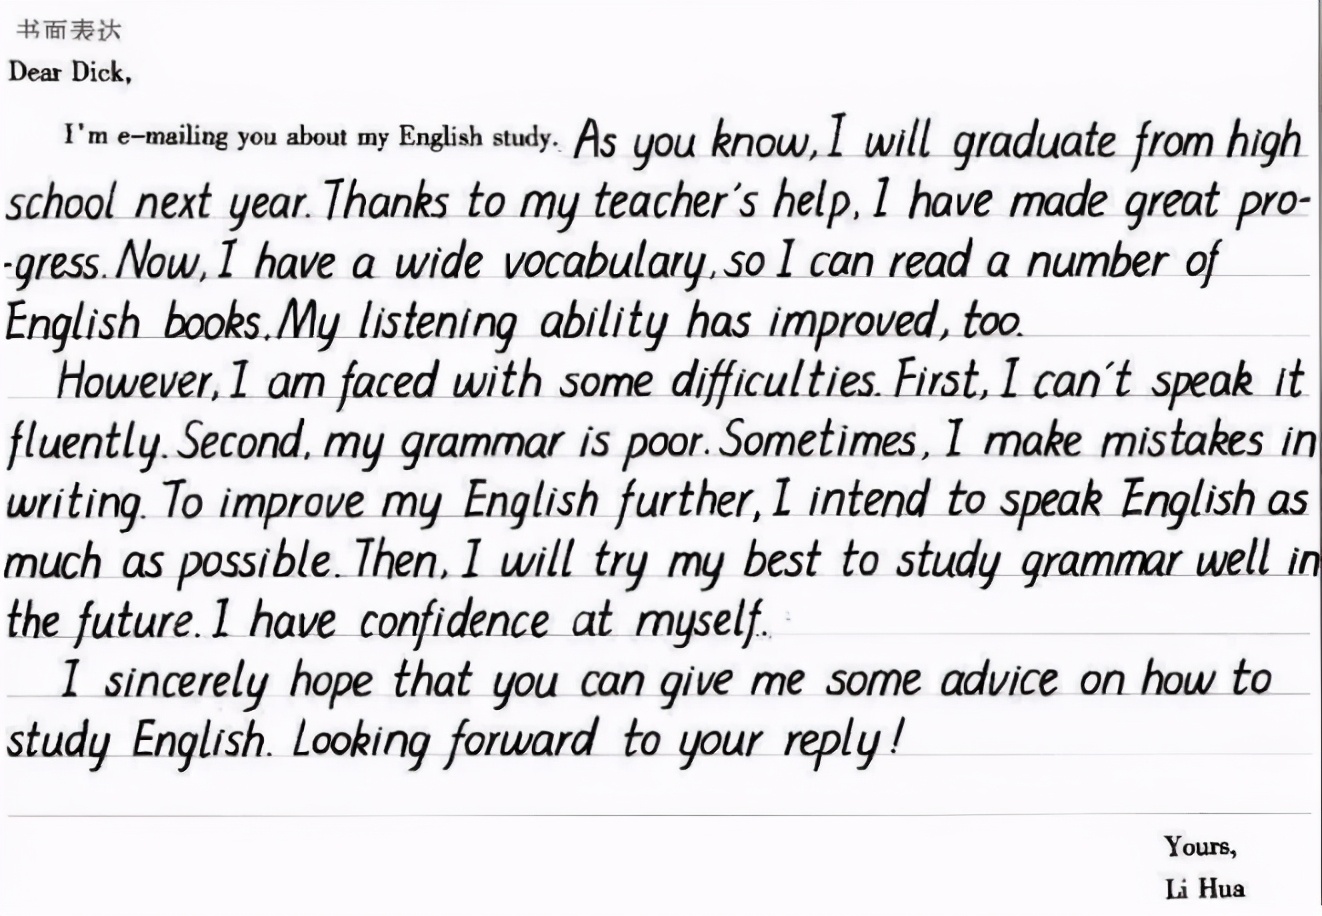 书面表达
Dear Dick,
I'm e-mailing you about my English study. As you know, I will graduate from high
school next year. Thanks to my teacher's help, I have made great pro-
-gress. Now, I have a wide vocabulary, so I can read a number of
English books. My listening ability has improved, too.
However, I am faced with some difficulties. First, I can't speak it
fluently. Second, my grammar is poor. Sometimes, I make mistakes in
writing. To improve my English further, I intend to speak English as
much as possible. Then, I will try my best to study grammar well in
the future. I have confidence at myself.
I sincerely hope that you can give me some advice on how to
study English. Looking forward to your reply!
Yours,
Li Hua